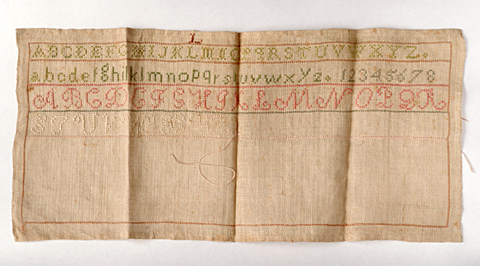 L
ABCDEFGHIJKLMNOPQRSTUVWXYZ.
abcdefghiklmnopqrstuvwxyz. 12345678
ABCDEFGHIKLMNOPQR
STUV